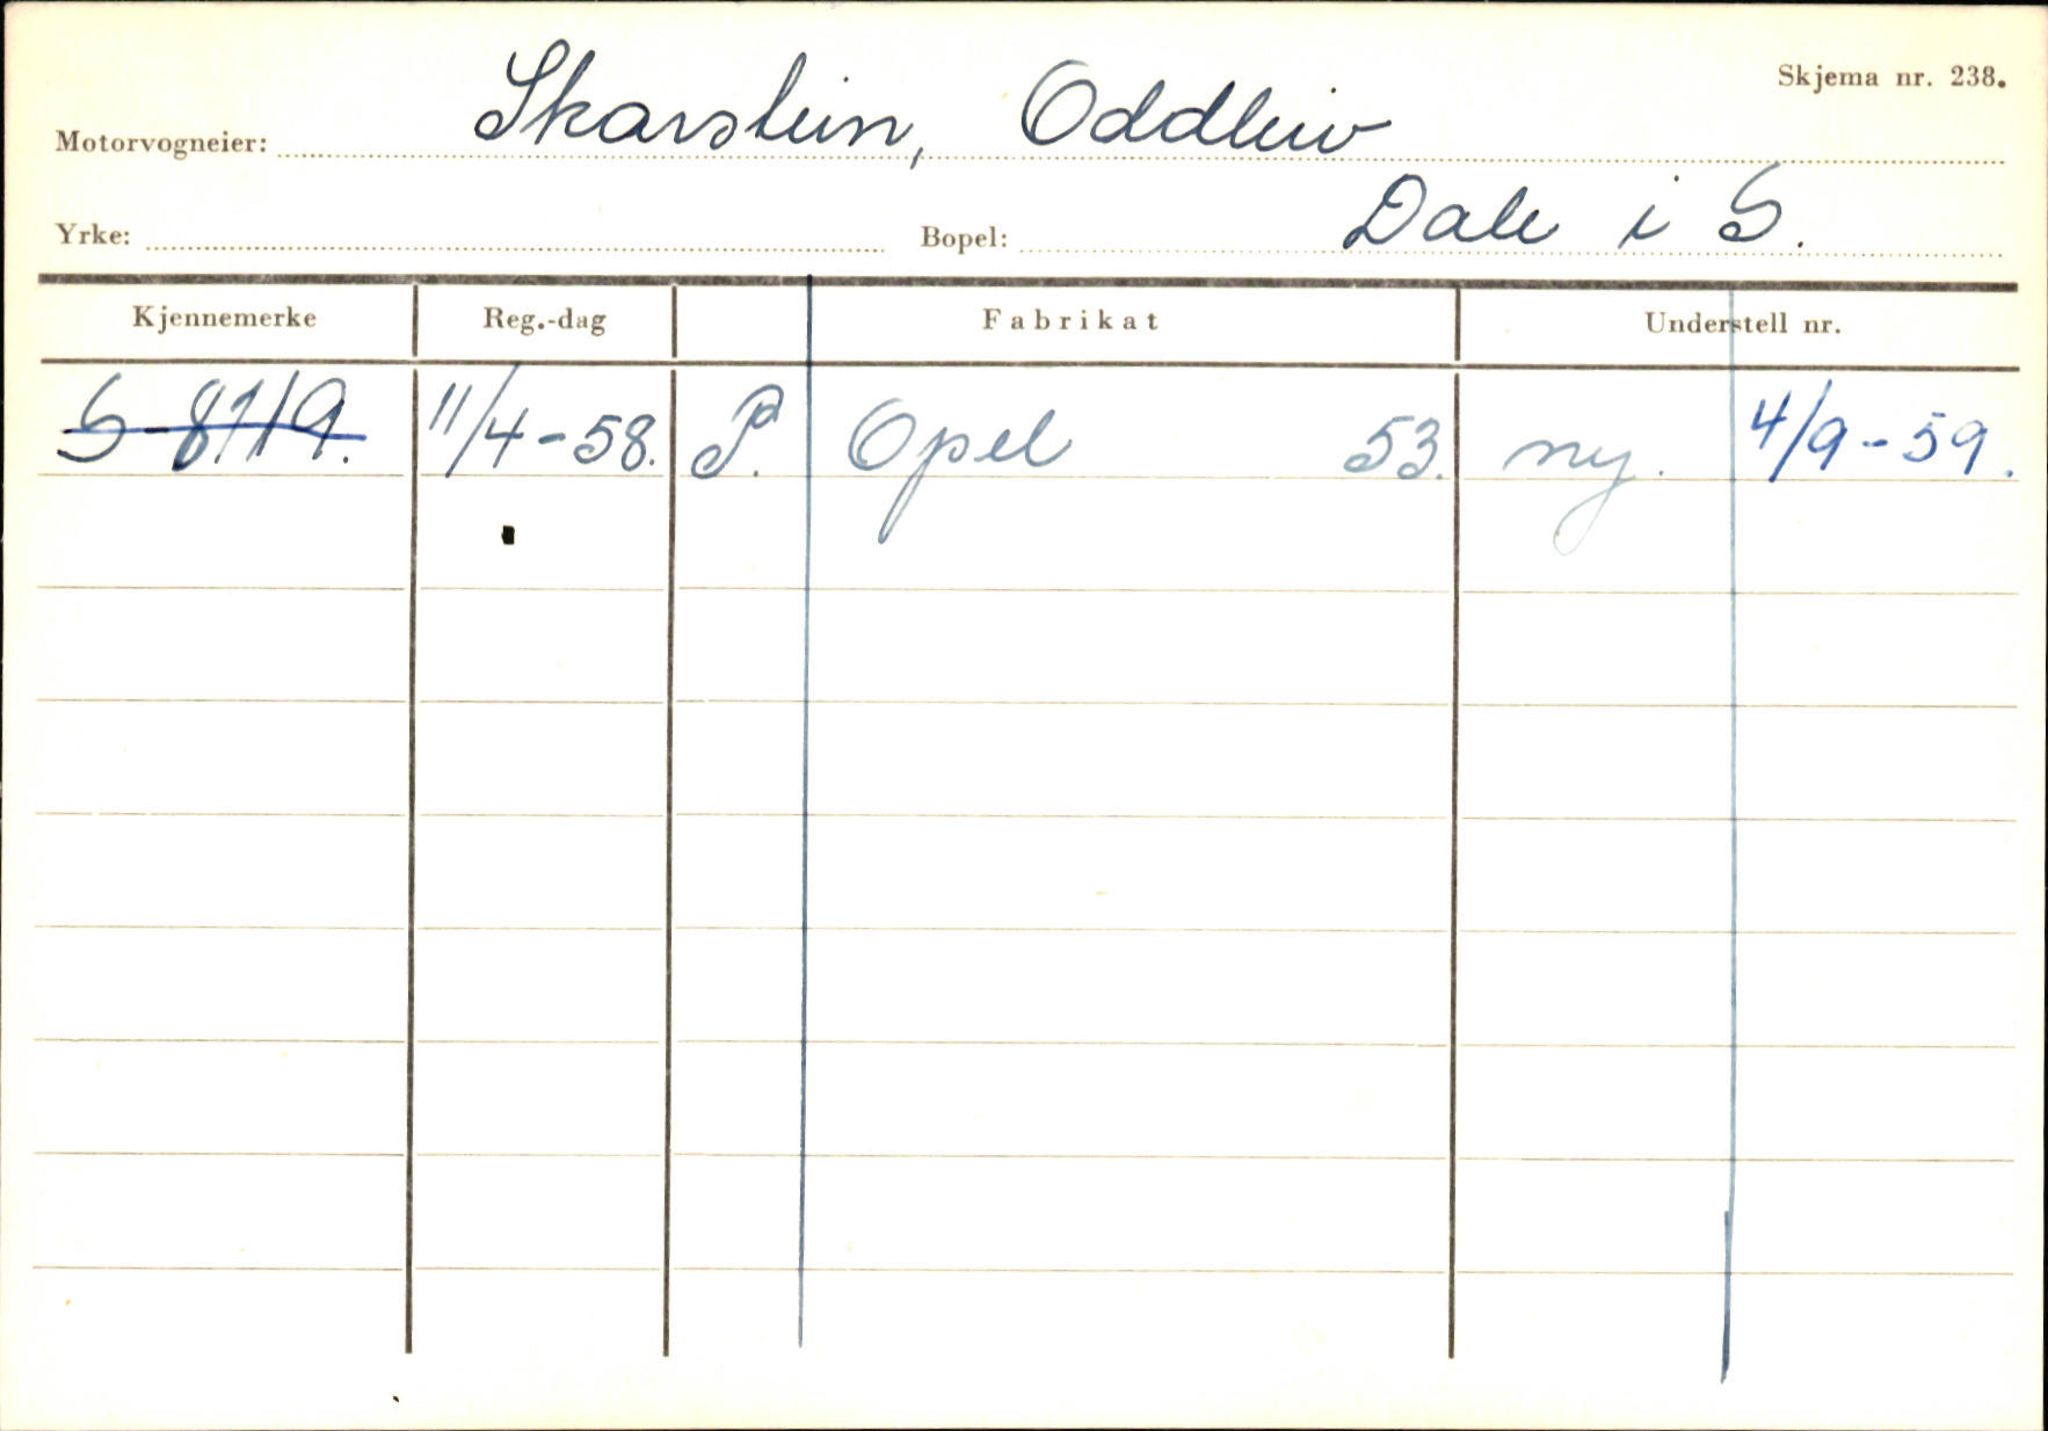 Skjema nr. 238.
Motorvogneier: Skarstein, Oddleiv
Yrke: Bopel: Dale i S.
Kjennemerke Reg.-dag Fabrikat Understell nr.
S-8719. 11/4-58. P. Opel 53. ny. 4/9-59.